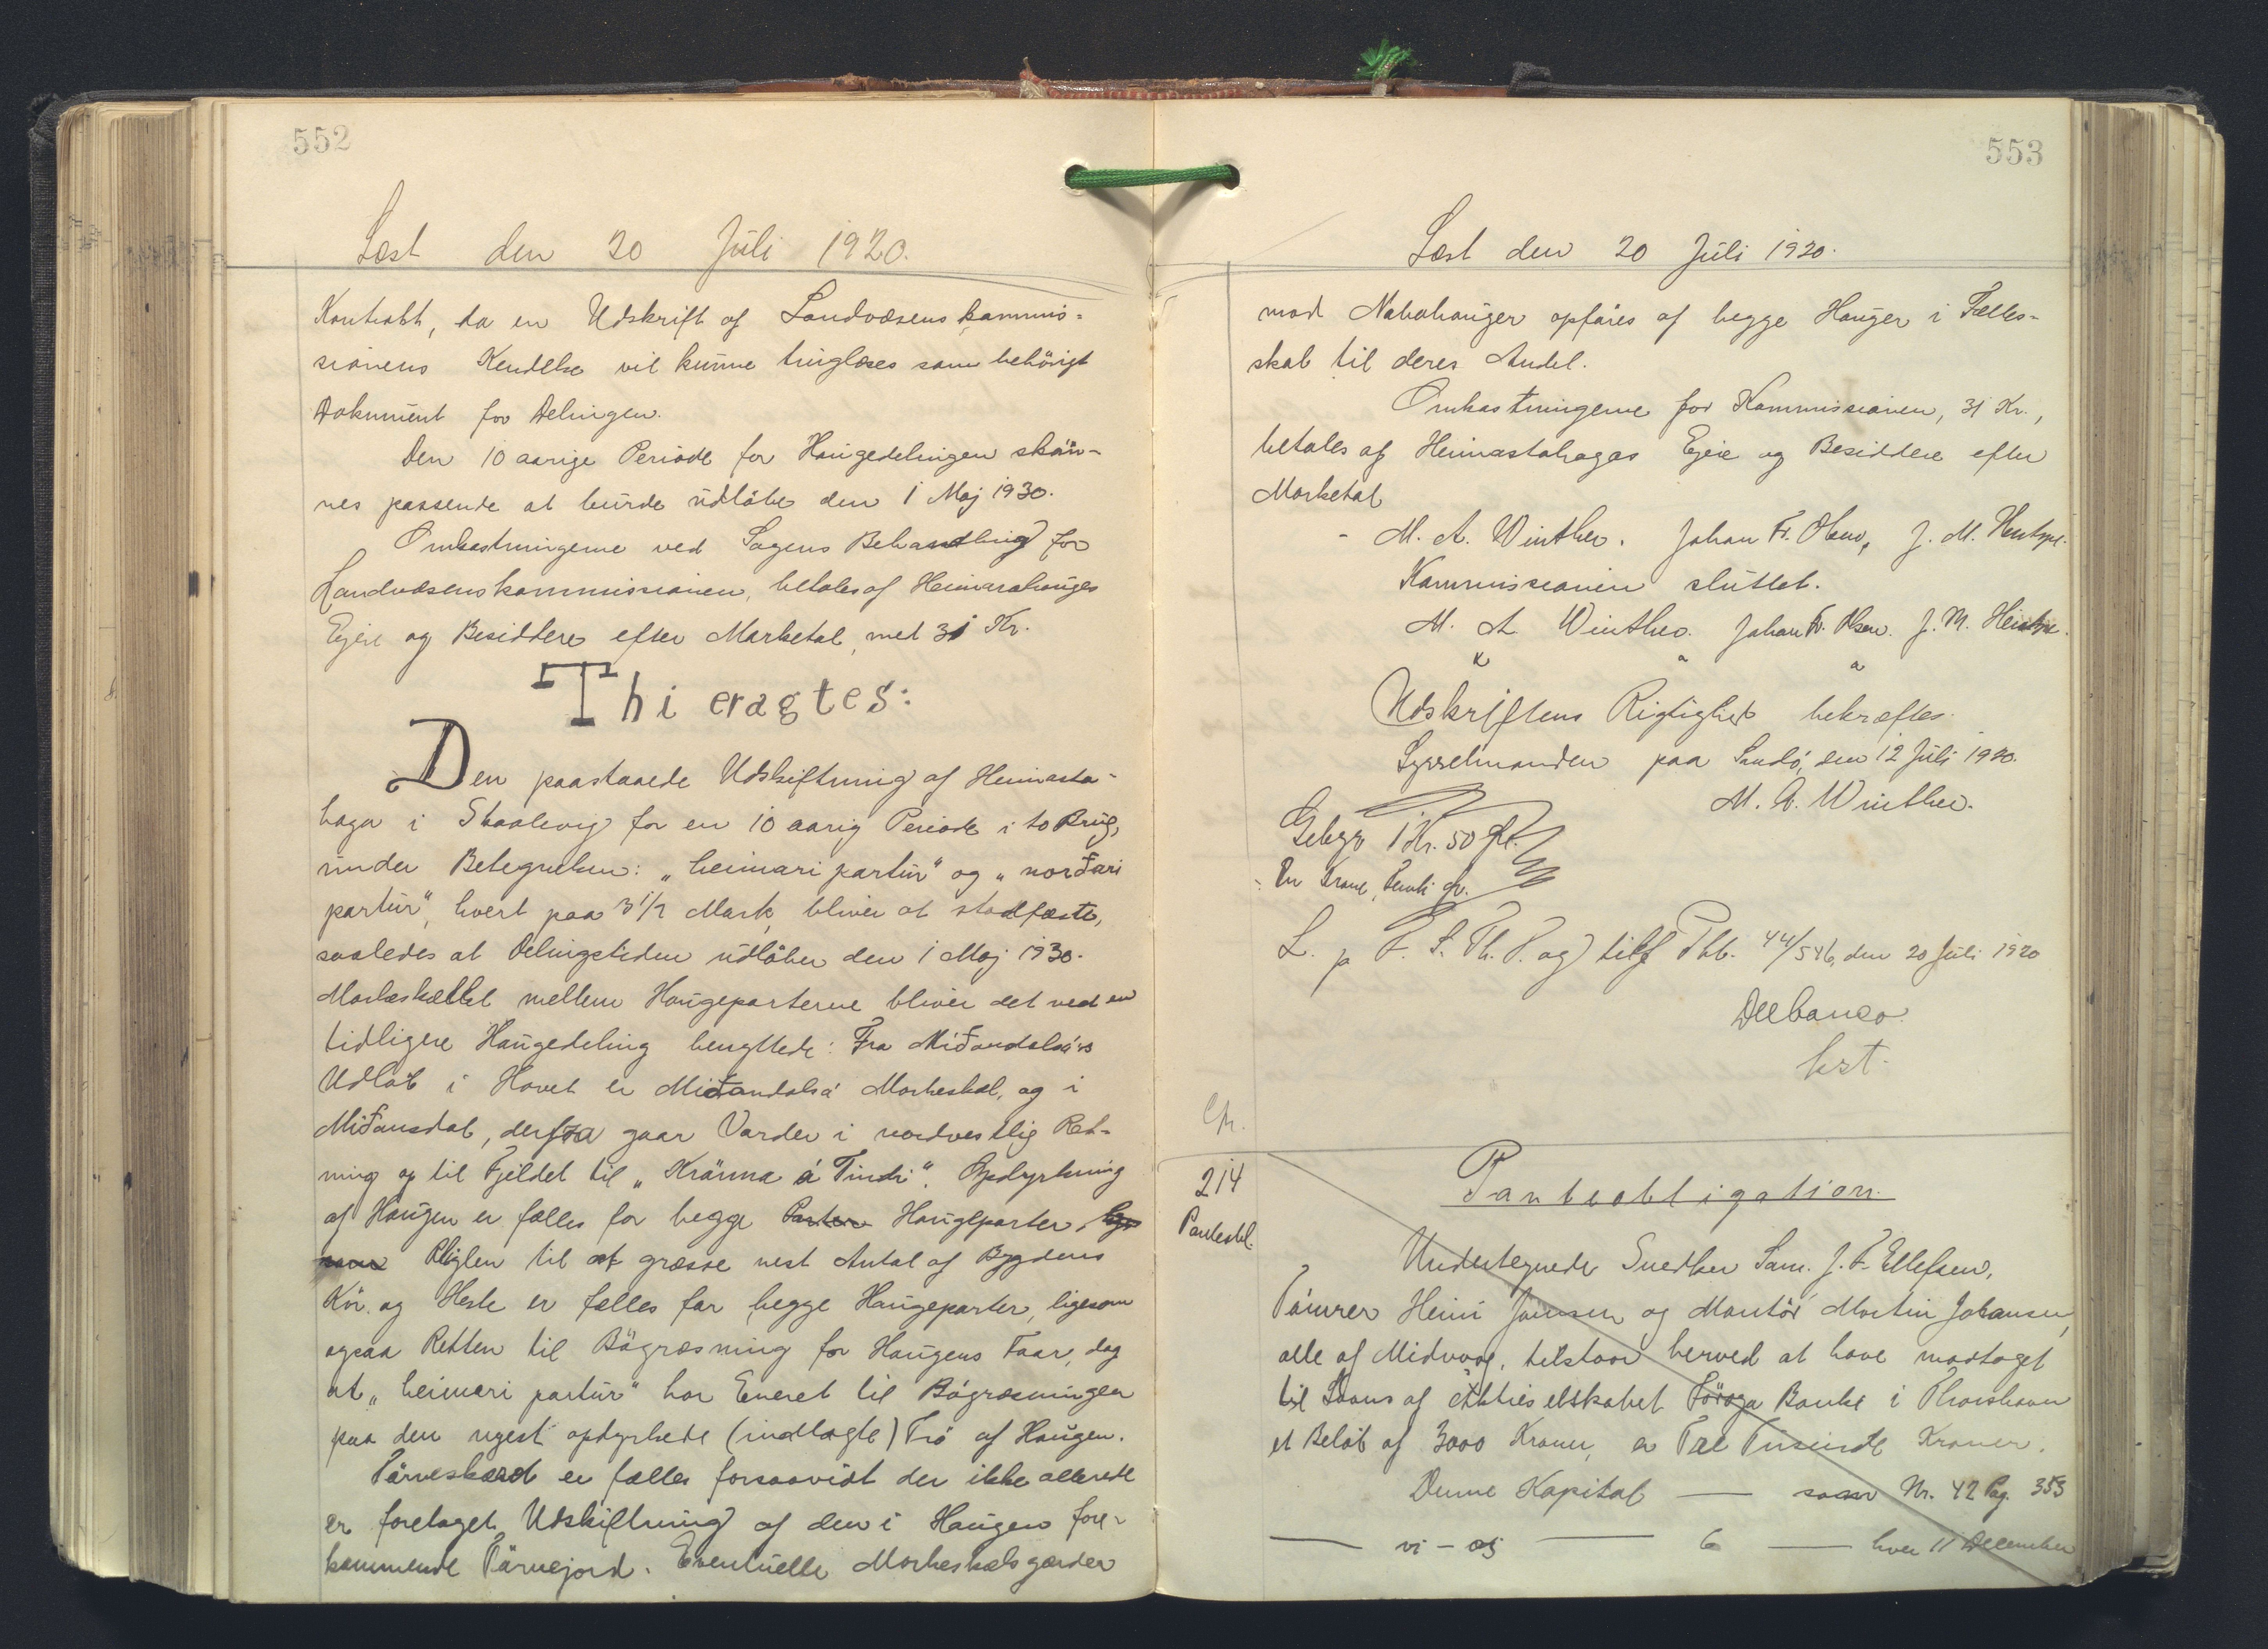 552
Læst den 20 Juli 1920.
Kontrakt, da en Udskrift af Landvæsenskommis=
sionens Kendelse vil kunne tinglæses som behörigt
Dokument for Delingen.
Den 10 aarige Periode for Haugedelingen skön-
nes passende at burde udlöbe den 1 Maj 1930.
Omkostningerne ved Sagens Behandling for
Landvæsenskommissionen, betales af Heimarahauges
Ejere og Besiddere efter Marketal, med 31 Kr.
Thi eragtes:
Den paastaaede Udskiftning af Heimasta-
haga i Skaalevig for en 10 aarig Periode i to Brug,
under Betegnelsen: „heimari partur" og „norðari
partur", hvert paa 3 1/2 Mark, bliver at stadfæste,
saaledes at Delingstiden udlöber den 1 Maj 1930.
Markeskællet mellem Haugeparterne bliver det ved en
tidligere Haugedeling benyttede: Fra Miðandalsá's
Udlöb i Havet er Miðandalsá Markeskel, og i
Miðansdal, derfra gaar Varder i nordvestlig Ret-
ning op til Fjeldet til „Kránna á Tindi". Opdyrkning
af Haugen er fælles for begge Parter Haugeparter, lige
som Pligten til at græsse vest Antal af Bygdens
Kör og Heste er fælles for begge Haugeparter, ligesom
ogsaa Retten til Bögræsning for Haugens Faar, dog
at „heimari partur" har Eneret til Bögræsningen
paa den nyest opdyrkede (indlagte) Trö af Haugen.
Törveskærd er fælles forsaavidt der ikke allerede
er foretaget Udskiftning af den i Haugen fore-
kommende Törvejord. Eventuelle Markeskelsgærder
553
Læst den 20 Juli 1920.
mod Nabohauger opföres af begge Hauger i Fælles-
skab til deres Andel.
Omkostningerne for Kommissionen, 31 Kr.,
betales af Heimastahagas Ejere og Besiddere efter
Marketal
- M. A. Winther. Johan Fr. Olsen, J. M. Hentze.
Kommissionen sluttet.
M. A. Winther. Johan Fr. Olsen. J. M. Hentze.
Udskriftens Rigtighed bekræftes.
Sysselmanden paa Sandö, den 12 Juli 1920.
M. A. Winther.
Gebyr 1 Kr. 50 Ø.
En Krone, Femti Ør.
L. p F. S. Th. P. og tilf Pbb. 44/546, den 20 Juli 1920
kst.
214
Pantobl.
Panteobligation.
Undertegnede Snedker Sam. J. F. Ellefsen,
Tömrer Heini Joensen og Montör Martin Johansen,
alle af Midvaag, tilstaar herved at have modtaget
til Laans af Aktieselskabet Föroya Banke i Thorshavn
et Belöb af 3000 Kroner, er Tre Tusinde Kroner.
Denne Kapital — som Nr. 42 Pag. 353
— vi - os — 6 — hver 11 December